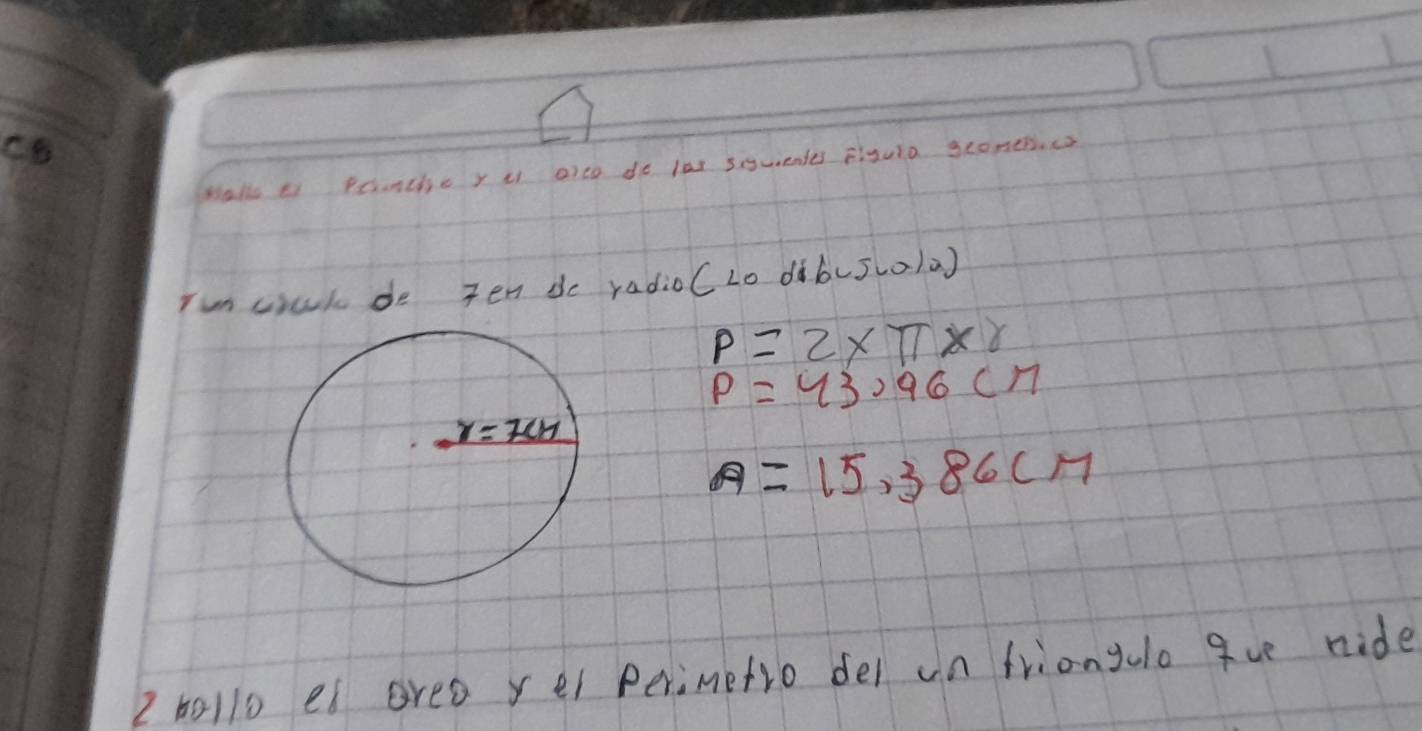 CB
Halle el Perimetro y el area de las siguientes Figura geometrica
1 un circulo de 7cm de radio (Lo dibujuala)
P = 2 x π x r
P = 43,96 CM
r = 7CM
A = 15,386 CM
2 hallo el area y el Perimetro del un triangulo que mide